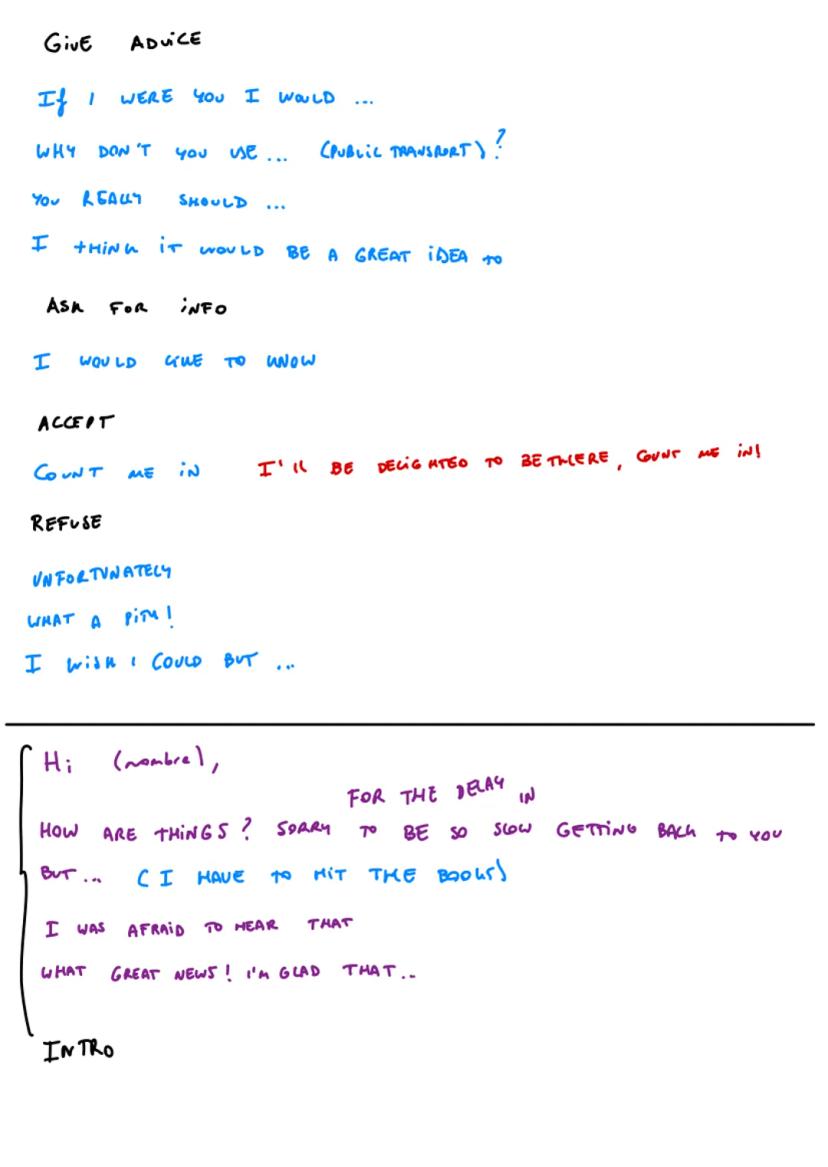 GIVE ADVICE
If I WERE YOU I WOULD ...
WHY DON'T YOU USE ... (PUBLIC TRANSPORT)?
YOU REALLY SHOULD ...
I THINK IT WOULD BE A GREAT IDEA TO
ASK FOR INFO
I WOULD LIKE TO KNOW
ACCEPT
COUNT ME IN I'll BE DELIGHTED TO BE THERE, COUNT ME IN!
REFUSE
UNFORTUNATELY
WHAT A PITY!
I WISH I COULD BUT ...
Hi (nombre),
FOR THE DELAY IN
HOW ARE THINGS? SORRY TO BE SO SLOW GETTING BACK TO YOU
BUT... (I HAVE TO HIT THE BOOKS)
I WAS AFRAID TO HEAR THAT
WHAT GREAT NEWS! I'M GLAD THAT..
INTRO